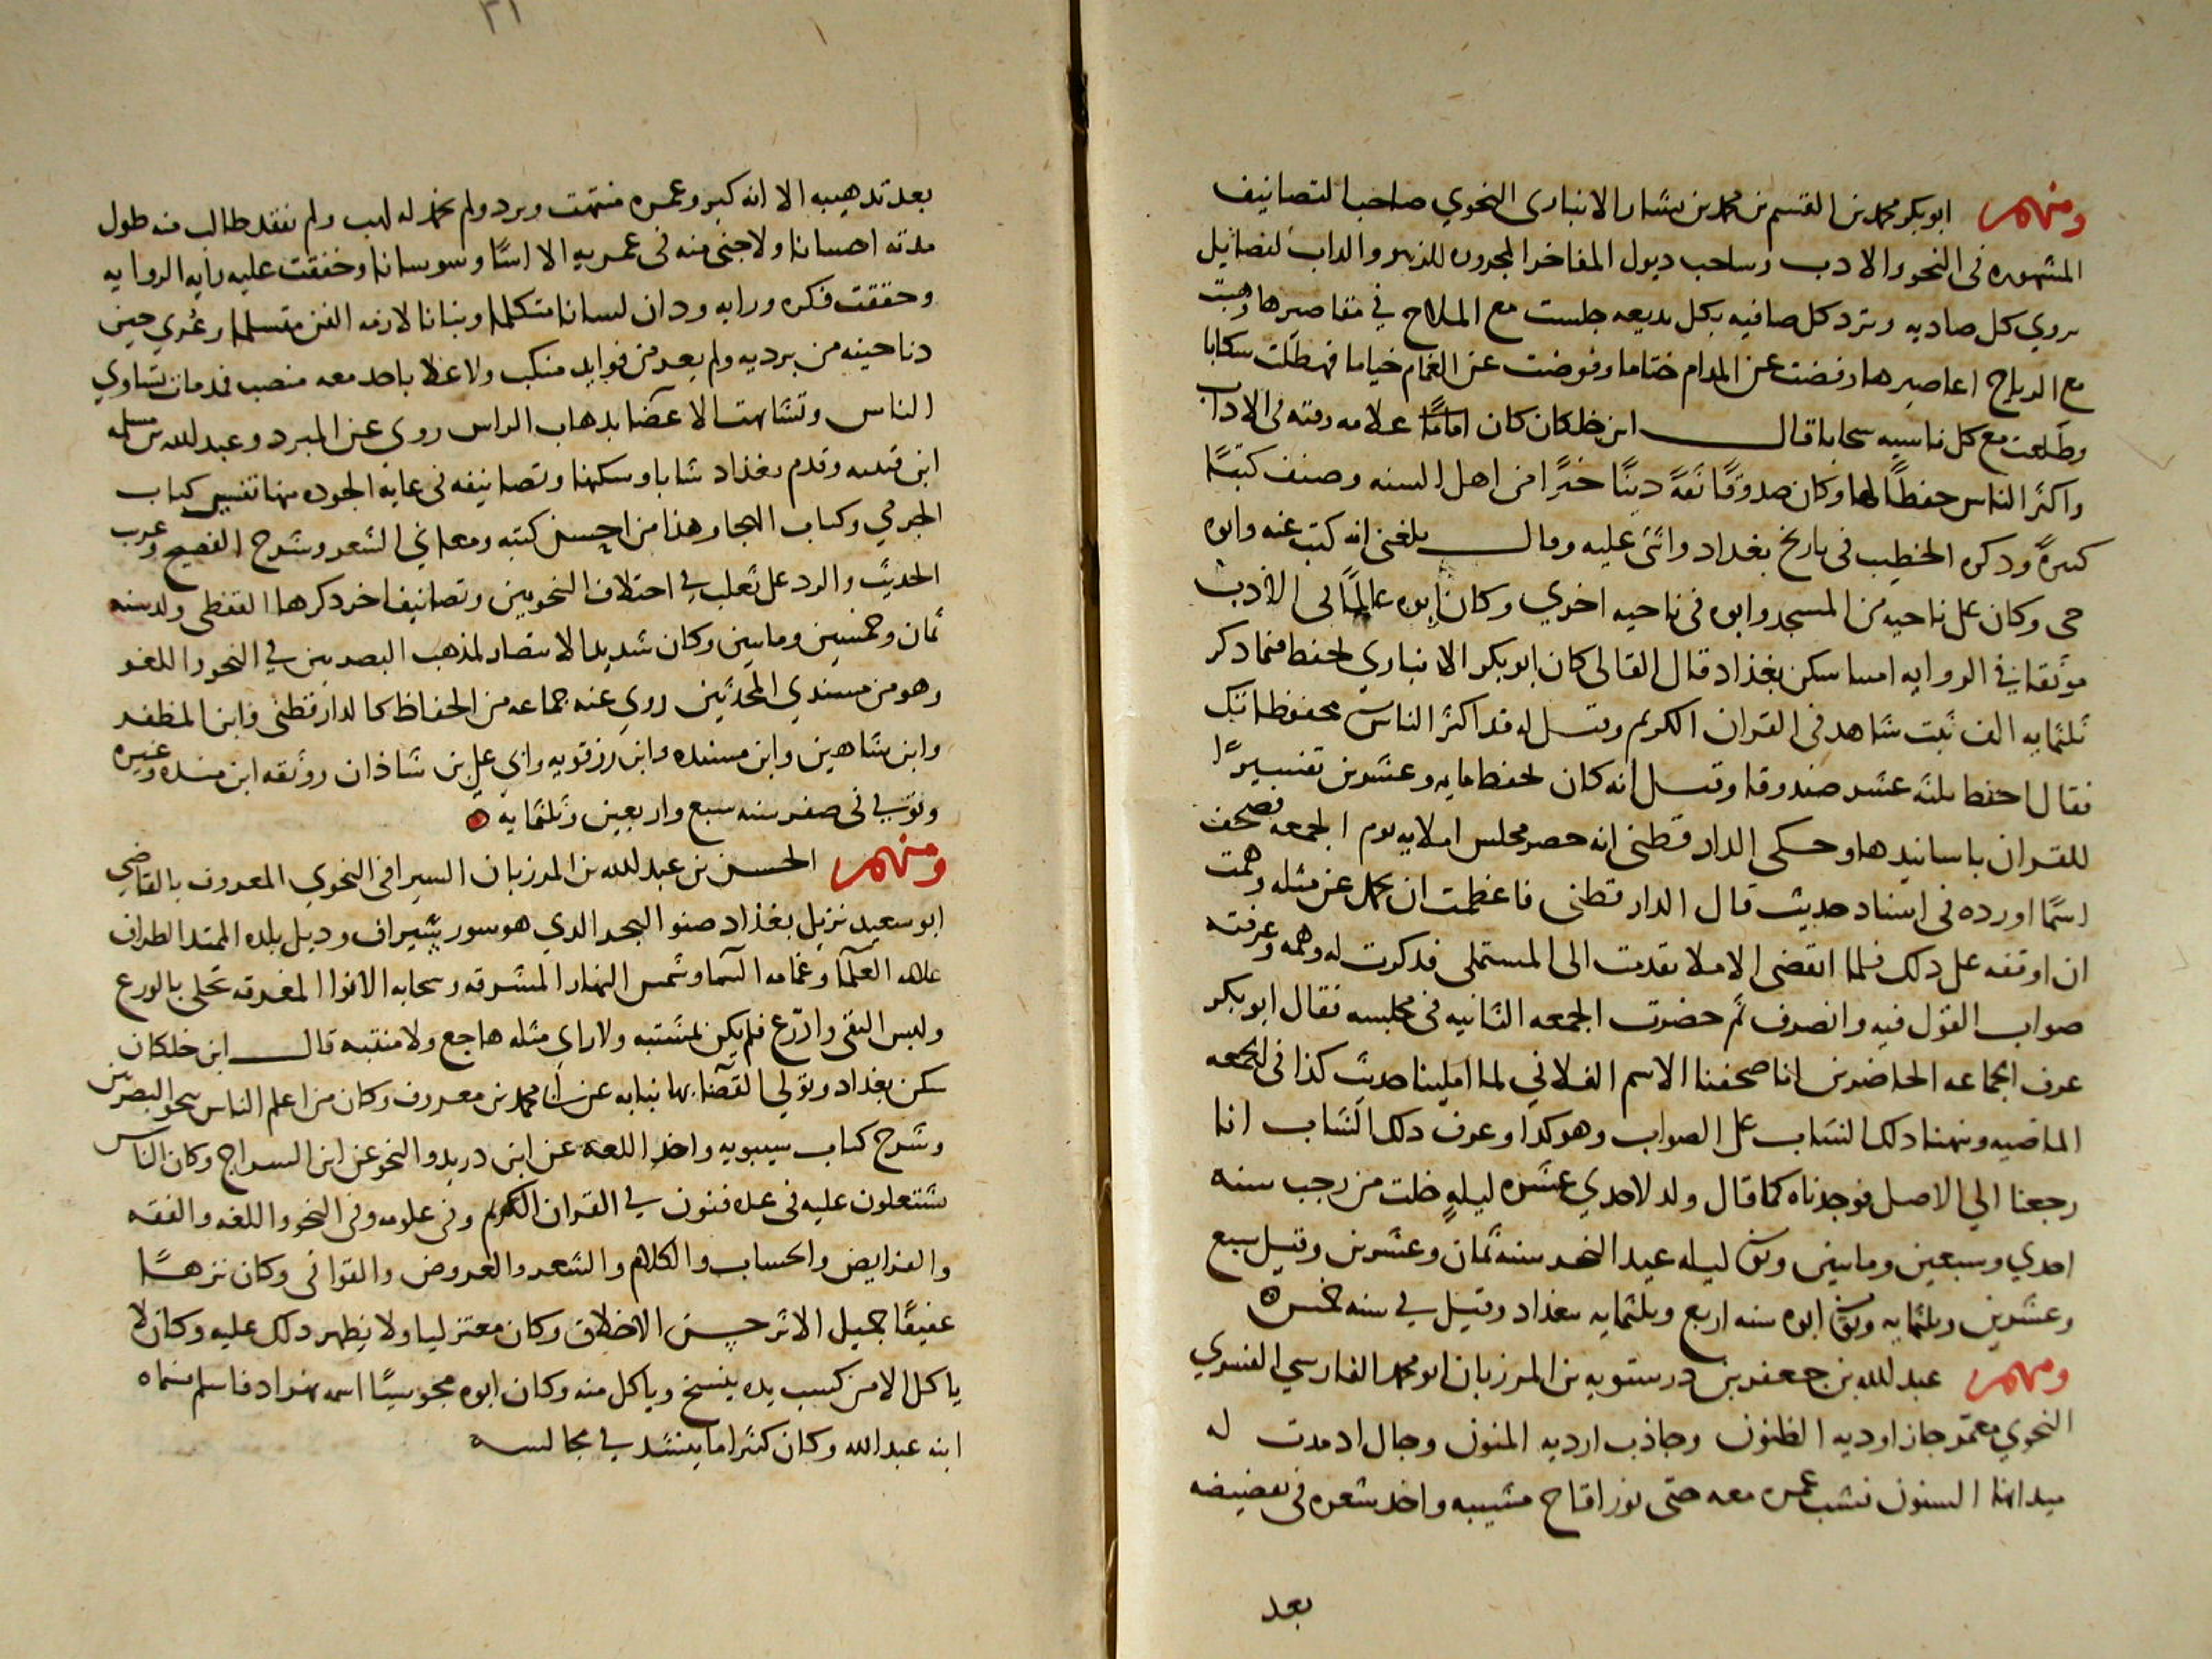 ومنهم ابوبكر محمد بن القسم بن محمد بن بشار الانبارى النحوي صاحب التصانيف
المشهوره فى النحو والادب وساحب ديول المفاخر المجروره للذيول والداب لفضائيل
يروي كل صاديه وترد كل صافيه بكل بديعه جلست مع الملاح في مقاصرها وهبت
مع الرياح اعاصيرها وفضت عن المدام ختاما وقوضت عن الغمام خياما فهطلت سكابا
وطلعت مع كل ناسيه سحابا قال ابن خلكان كان اماما علامه وقته فى الاداب
واكثر الناس حفظا لها وكان صدوقا ثقة دينا خيرا من اهل السنه وصنف كتبا
كثيرة ودكره الخطيب فى تاريخ بغداد واثنى عليه وقال بلغنى انه كتب عنه وابوه
حى وكان يملى ناحيه من المسجد وابوه فى ناحيه اخرى وكان ابوه عالما بالادب
موثقا في الروايه امينا سكن بغداد قال القالى كان ابو بكر الانباري يحفظ فيما دكر
ثلثمايه الف بيت شاهد فى القران الكريم وقيل له قد اكثر الناس محفوظاتك
فقال احفظ ثلثه عشر صندوقا وقيل انه كان يحفظ مايه وعشرين تفسيرا
للقران باسانيدها وحكى الدارقطنى انه حضر مجلس املايه يوم الجمعه فصحف
اسما اورده فى اسناد حديث قال الدارقطنى فاعظمت ان يحمل عن مثله وهمت
ان اوقفه على دلك فلما انقضى الاملا تقدمت الى المستملى فدكرت له وهمه وعرفته
صواب القول فيه وانصرف ثم حضرت الجمعه الثانيه فى مجلسه فقال ابو بكر
عرف الجماعه الحاضرين انا صحفنا الاسم الفلاني لما املينا حديث كذا فى الجمعه
الماضيه ونبهنا دلك الشاب على الصواب وهو كدا وعرف دلك الشاب انا
رجعنا الي الاصل فوجدناه كما قال ولد لاحدي عشره ليله خلت من رجب سنه
احدي وسبعين ومايتين وتوفى ليله عيد النحر سنه ثمان وعشرين وقيل سبع
وعشرين وثلثمايه وتوفى ابوه سنه اربع وثلثمايه ببغداد وقيل في سنه خمس
ومنهم عبد الله بن جعفر بن درستويه بن المرزبان ابو محمد الفارسي الفسوي
النحوي معمر جاز اوديه الظنون وجاذب ارديه المنون وجال اد مدت له
ميدانها السنون فشب عمره معه حتى نور اقاح مشيبه واخد شعره فى تفضيضه
بعد
بعد تدهيبه الا انه كبر وعمره منتهت وبرد ولم يخمد له لهب ولم نفقد طالب منه طول
مدته احسانا ولا جنى منه فى عمريه الا اسا وسوسانا وخفقت عليه رايه الروايه
وحققت فكره ورايه ودان لسانا متكلما وبنانا لازمه الفن متسلما وعري حين
دنا حينه من برديه ولم يعد من فوايد منكب ولا علا باحد معه منصب فدمات تساوي
الناس وتشابهت الاعضا بدهاب الراس روى عن المبرد وعبد الله بن مسلم
ابن قتيبه وقدم بغداد شابا وسكنها وتصانيفه فى غايه الجوده منها تفسير كتاب
الجرمي وكتاب الهجا وهذا من احسن كتبه ومعاني الشعر وشرح الفصيح وغريب
الحديث والرد على ثعلب في اختلاف النحويين وتصانيف اخر دكرها القفطى ولد سنه
ثمان وخمسين ومايتين وكان شديد الانتصار لمذهب البصريين في النحو واللغو
وهو من مسندي المحدثين روى عنه جماعه من الحفاظ كالدارقطنى وابن المظفر
وابن شاهين وابن منده وابن رزقويه وابي على بن شاذان ووثقه ابن منده وغيره
وتوفى فى صفر سنه سبع واربعين وثلثمايه
ومنهم الحسن بن عبد الله بن المرزبان السيرافى النحوي المعروف بالقاضي
ابو سعيد نزيل بغداد صنو البحر الدي هو سور سيراف وديل بلده الممتد الطراف
علامه العلما وغمامه السما وشمس النهار المشرقه وسحابه الانوا المغدقه تحلى بالورع
ولبس التقى وادرع فلم يكن لمشتبه ولا راي مثله هاجع ولا منتبه قال ابن خلكان
سكن بغداد وتولى القضا بها نيابه عن ابى محمد بن معروف وكان من اعلم الناس بنحو البصريين
وشرح كتاب سيبويه واخد اللغه عن ابن دريد والنحو عن ابن السراج وكان الناس
يشتغلون عليه فى عده فنون في القران الكريم وفى علومه وفى النحو واللغه والفقه
والفرايض والحساب والكلام والشعر والعروض والقوافى وكان نزها
عفيفا جميل الاثر حسن الاخلاق وكان معتزليا ولا يظهر دلك عليه وكان لا
ياكل الا من كسب يده ينسخ وياكل منه وكان ابوه مجوسيا اسمه بهزاد فاسلم فسماه
ابنه عبد الله وكان كثيرا ما ينشد في مجالسه